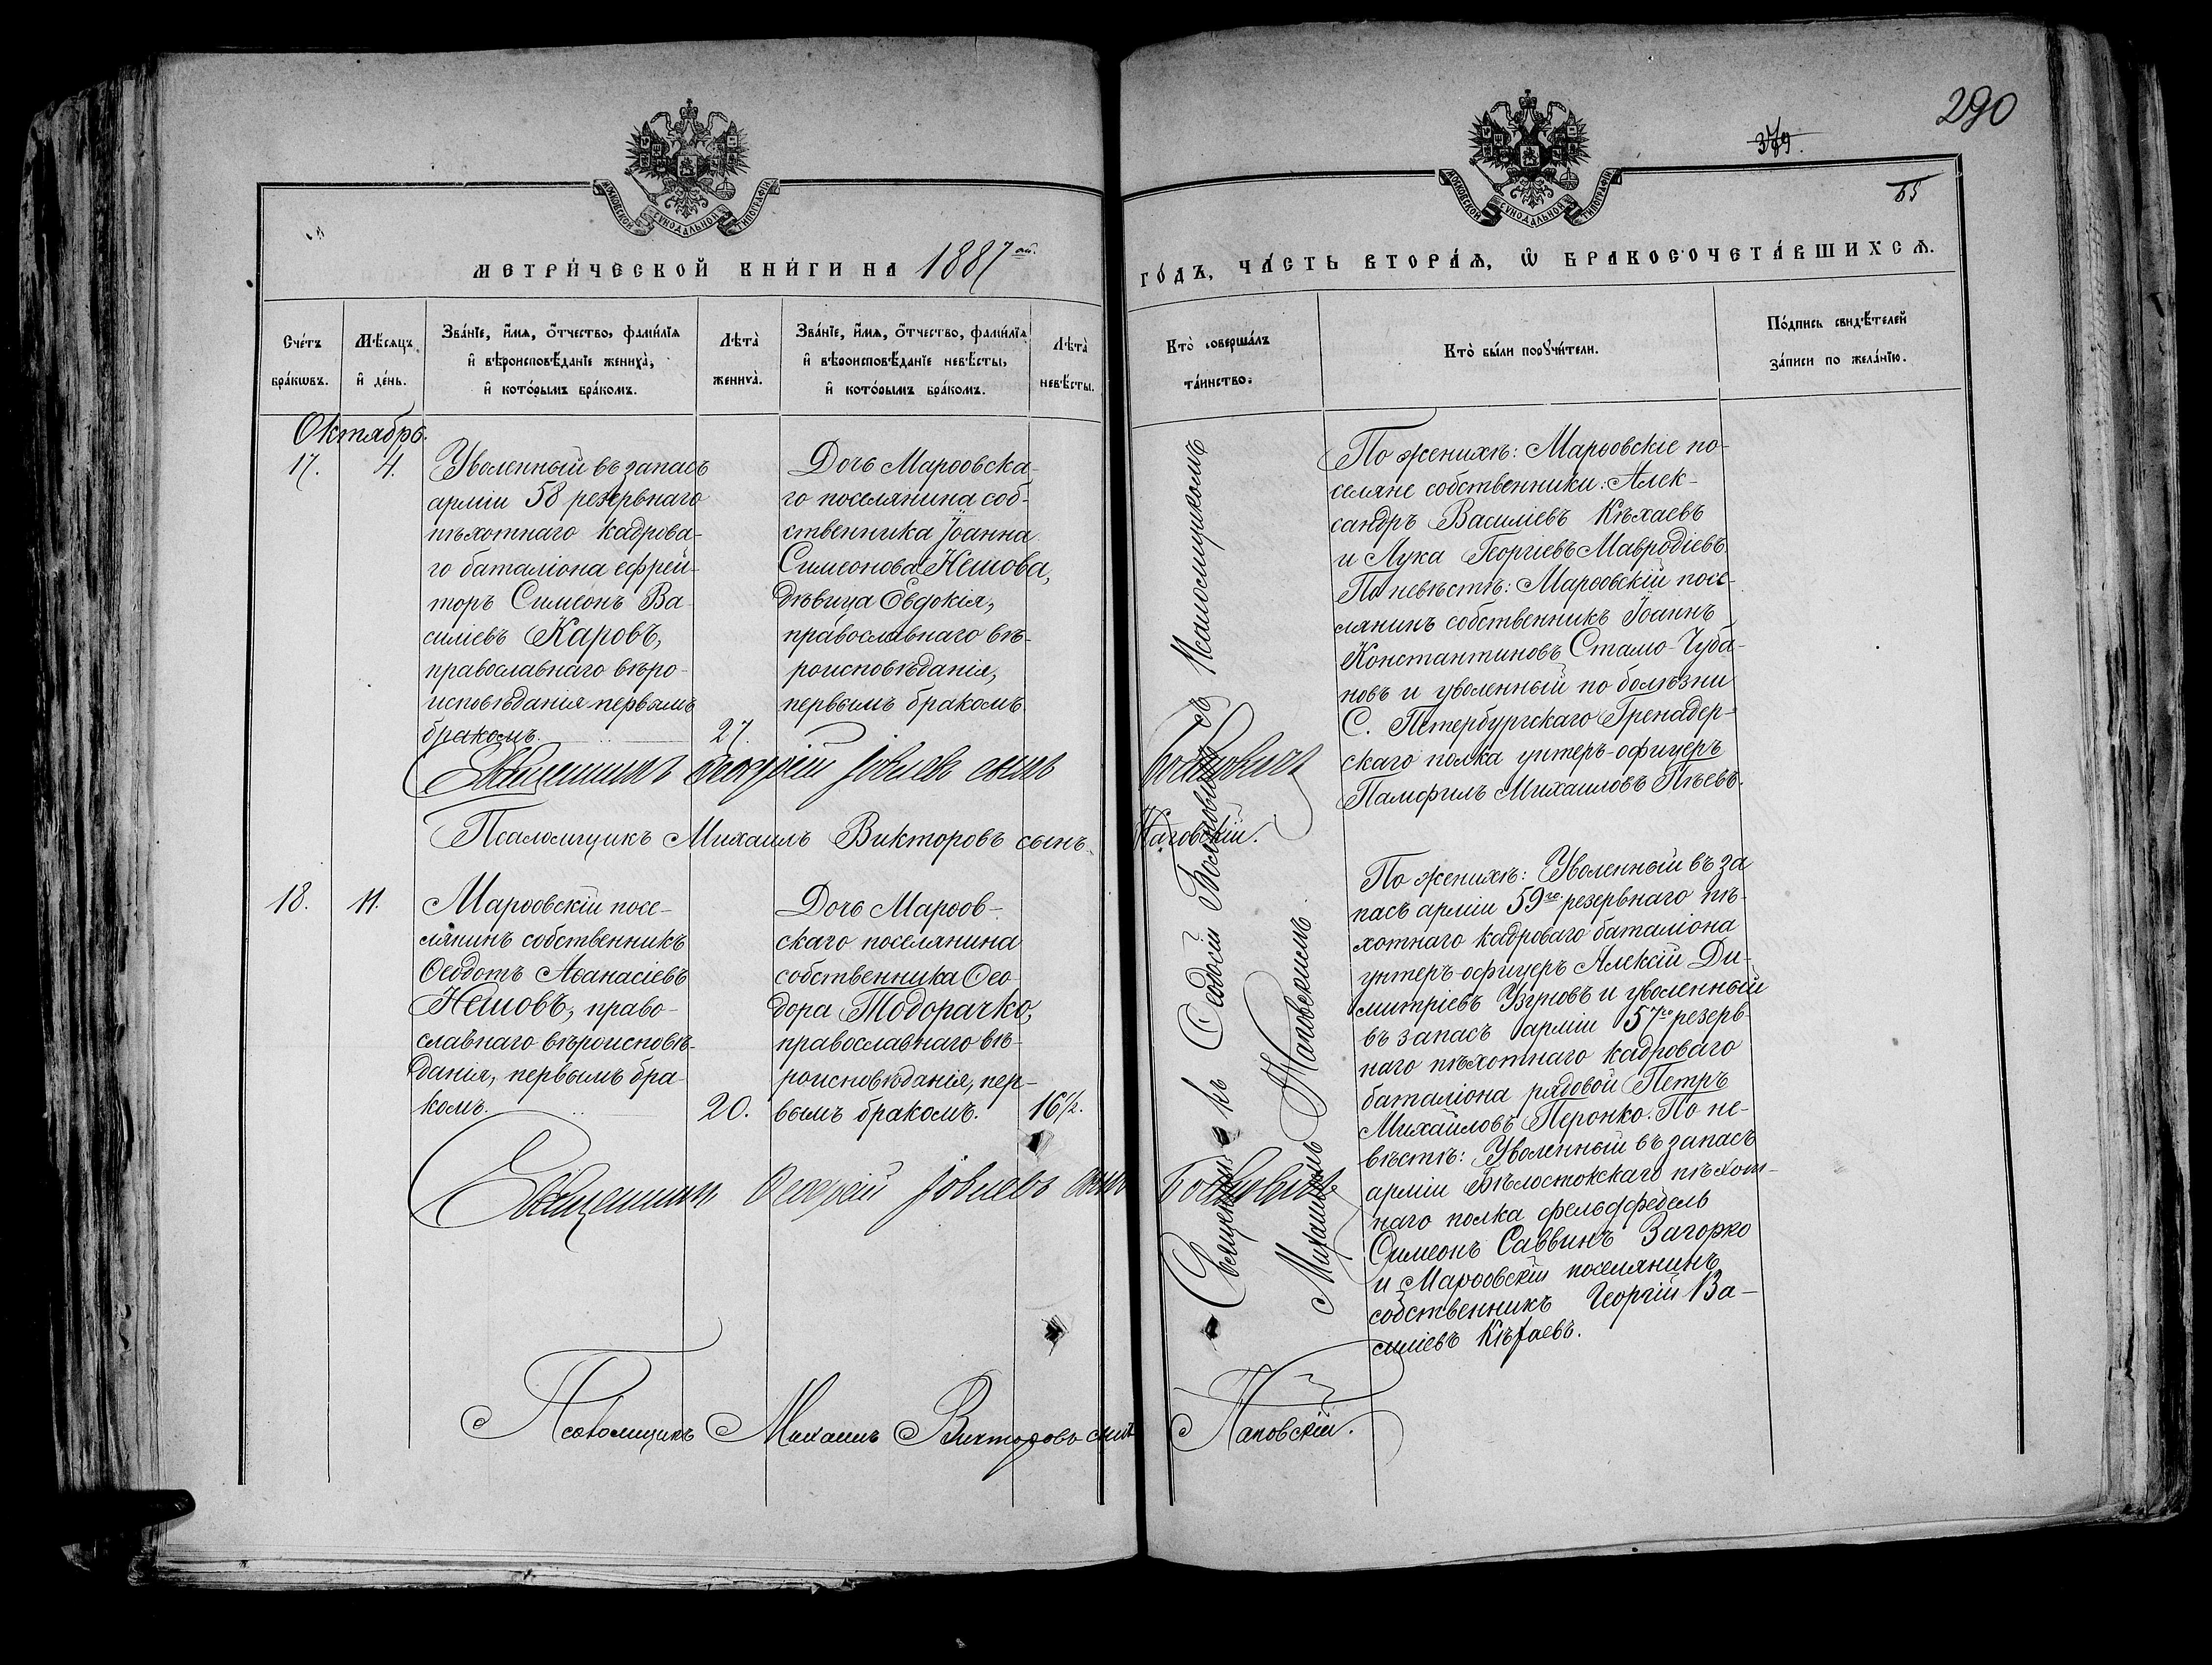 290
379.
65
МОСКОВСКОЙ СѴНОДАЛЬНОЙ ТИПОГРАФІИ
МОСКОВСКОЙ СѴНОДАЛЬНОЙ ТИПОГРАФІИ
МЕТРИ́ЧЕСКОЙ КНИ́ГИ НА 1887 ой.
ГО́ДЪ, ЧА́СТЬ ВТОРА́Ѧ, Ѽ БРАКОСОЧЕТА́ВШИХСѦ.
Сче́тъ бра́кѡвъ.
Мѣ́сѧцъ и҆ де́нь.
Зва́нїе, и҆́мѧ, ѻ҆́тчество, фами́лїѧ и҆ вѣроисповѣ́данїе жениха̀, и҆ кото́рымъ бра́комъ.
Лѣта̀ жениха̀.
Зва́нїе, и҆́мѧ, ѻ҆́тчество, фами́лїѧ и҆ вѣроисповѣ́данїе невѣ́сты, и҆ кото́рымъ бра́комъ.
Лѣта̀ невѣ́сты.
Кто̀ соверша́лъ та́инство.
Кто̀ бы́ли порꙋчи́тели.
По́дпись свидѣ́телей за́писи по жела́нїю.
Октябрь.
17.
4.
Уволенный въ запасъ
арміи 58 резервнаго
пѣхотнаго кадрова-
го баталіона ефрей-
торъ Симеонъ Ва-
силіевъ Каровъ,
православнаго вѣро-
исповѣданія первымъ
бракомъ.
27.
Дочь Марѳовска-
го поселянина соб-
ственника Іоанна
Симеонова Нешова,
дѣвица Евдокія,
православнаго вѣ-
роисповѣданія,
первымъ бракомъ.
По женихѣ: Марѳовскіе по-
селяне собственники: Алек-
сандръ Василіевъ Кѣхаевъ
и Лука Георгіевъ Мавродіевъ.
По невѣстѣ: Марѳовскій посе-
лянинъ собственникъ Іоаннъ
Константиновъ Стамо-Чуба-
новъ и уволенный по болѣзни
С. Петербургскаго Гренадер-
скаго полка унтеръ-офицеръ
Памфилъ Михаиловъ Пѣевъ.
Священникъ Ѳеодосій Іовлевъ сынъ
Псаломщикъ Михаилъ Викторовъ сынъ
Паповскій.
18.
11.
Марѳовскій посе-
лянинъ собственникъ
Ѳеодотъ Аѳанасіевъ
Нешовъ, право-
славнаго вѣроисповѣ-
данія, первымъ бра-
комъ.
20.
Дочь Марѳов-
скаго поселянина
собственника Ѳео-
дора Тодорачко,
православнаго вѣ-
роисповѣданія, пер-
вымъ бракомъ.
16 1/2.
Священникъ Ѳеодосій съ Псаломщикомъ
Михаиломъ Паповскимъ.
По женихѣ: Уволенный въ за
пасъ арміи 59го резервнаго пѣ-
хотнаго кадроваго баталіона
унтеръ-офицеръ Алексій Ди-
митріевъ Узуновъ и уволенный
въ запасъ арміи 57го резерв-
наго пѣхотнаго кадроваго
баталіона рядовой Петръ
Михайловъ Перонко. По не-
вѣстѣ: Уволенный въ запасъ
арміи Бѣлостокскаго пѣхот-
наго полка фельдфебель
Симеонъ Саввинъ Загорко
и Марѳовскій поселянинъ
собственникъ Георгій Ва-
силіевъ Кѣхаевъ.
Священникъ Ѳеодосій Іовлевъ сынъ
Псаломщикъ Михаилъ Викторовъ сынъ Паповскій.